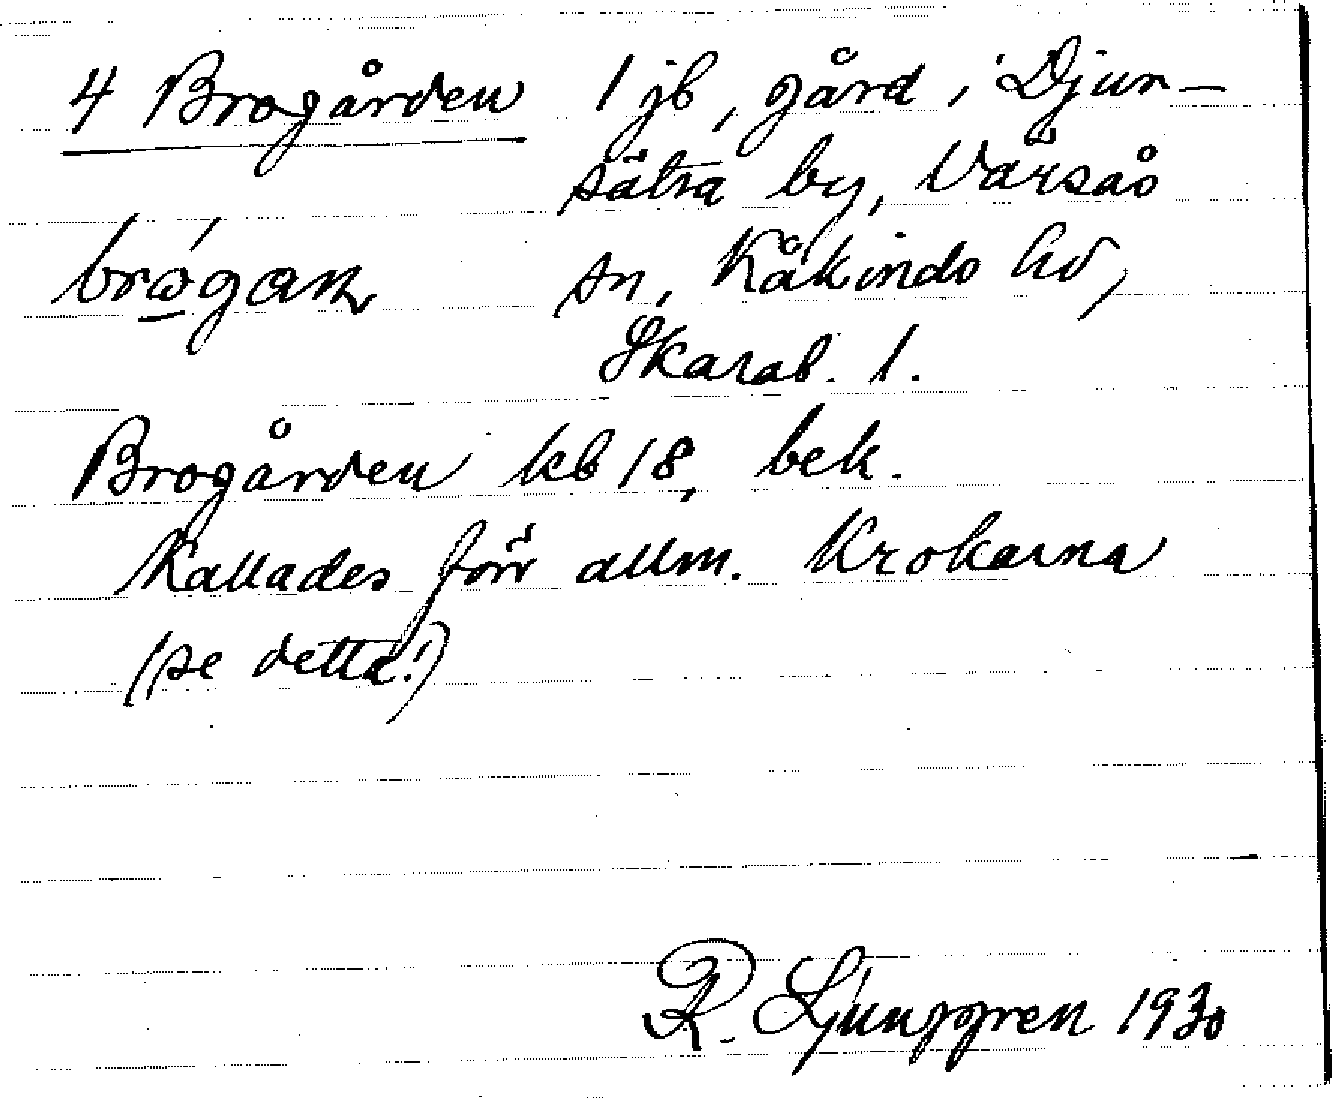 4 Brogården 1 jb, gård i Djur-
sätra by, Värsås
brǿgan sn, Kåkinds hd,
Skarab. l.
Brogården kb 18, bek.
Kallades förr allm. Krokarna
(se detta!)
R. Ljunggren 1930